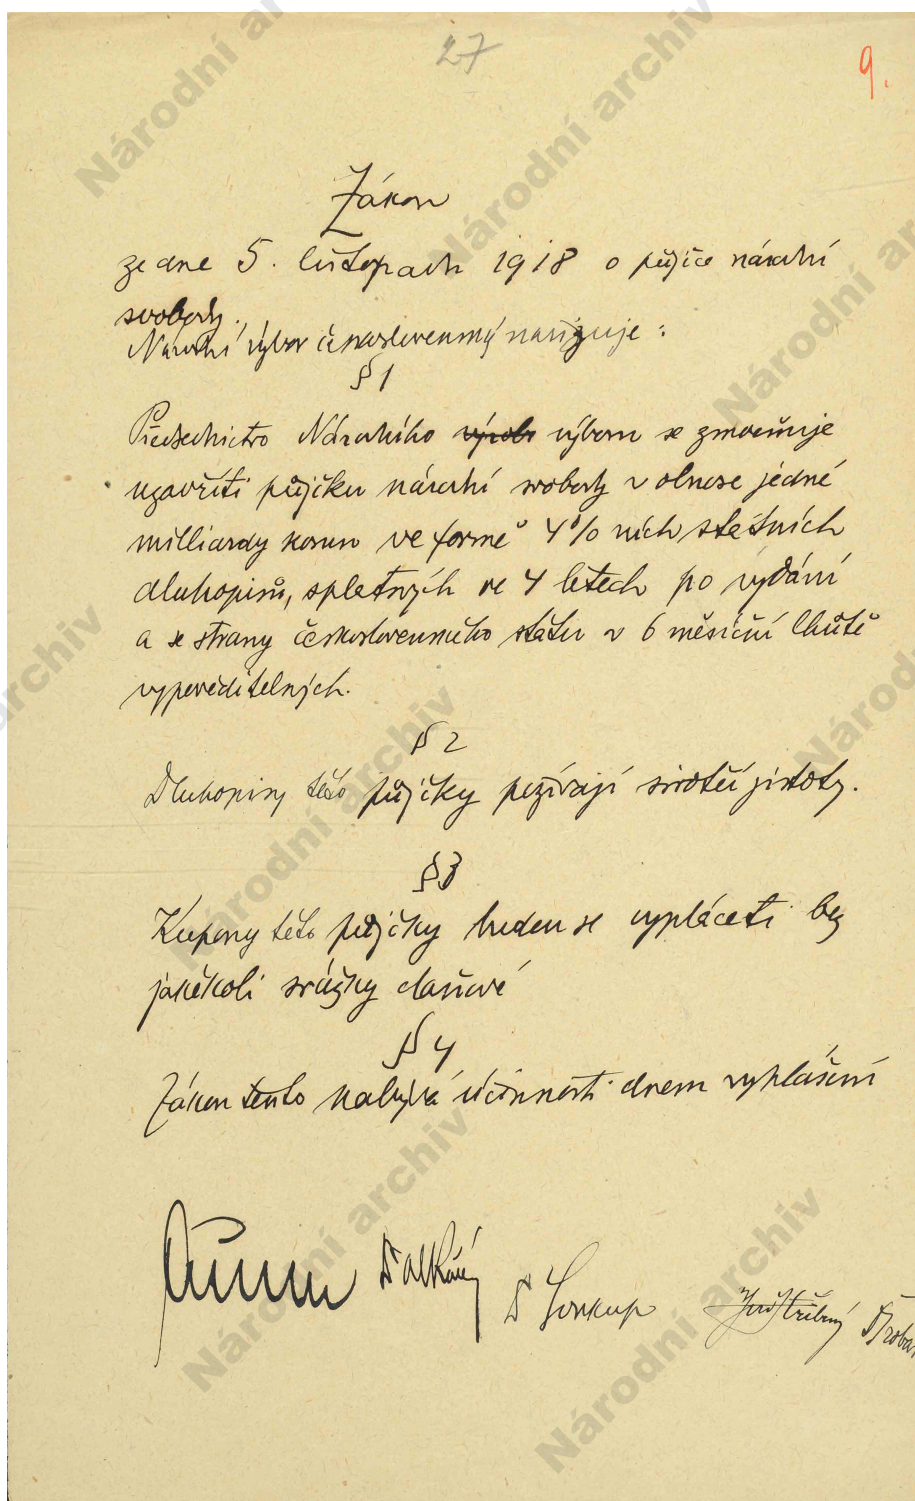 27
9.
Zákon
ze dne 5. listopadu 1918 o půjčce národní
svobody.
Národní výbor československý nařizuje:
§ 1
Předsednictvo Národního výbor výboru se zmocňuje
uzavříti půjčku národní svobody v obnose jedné
milliardy korun ve formě 4% ních státních
dluhopisů, splatných ve 4 letech po vydání
a se strany československého státu v 6 měsíční lhůtě
vypověditelných.
§ 2
Dluhopisy této půjčky požívají sirotčí jistoty.
§ 3
Kupony této půjčky budou se vypláceti bez
jakékoli srážky daňové
§ 4
Zákon tento nabývá účinnosti dnem vyhlášení
Dr Soukup Jiří Stříbrný
Národní archiv